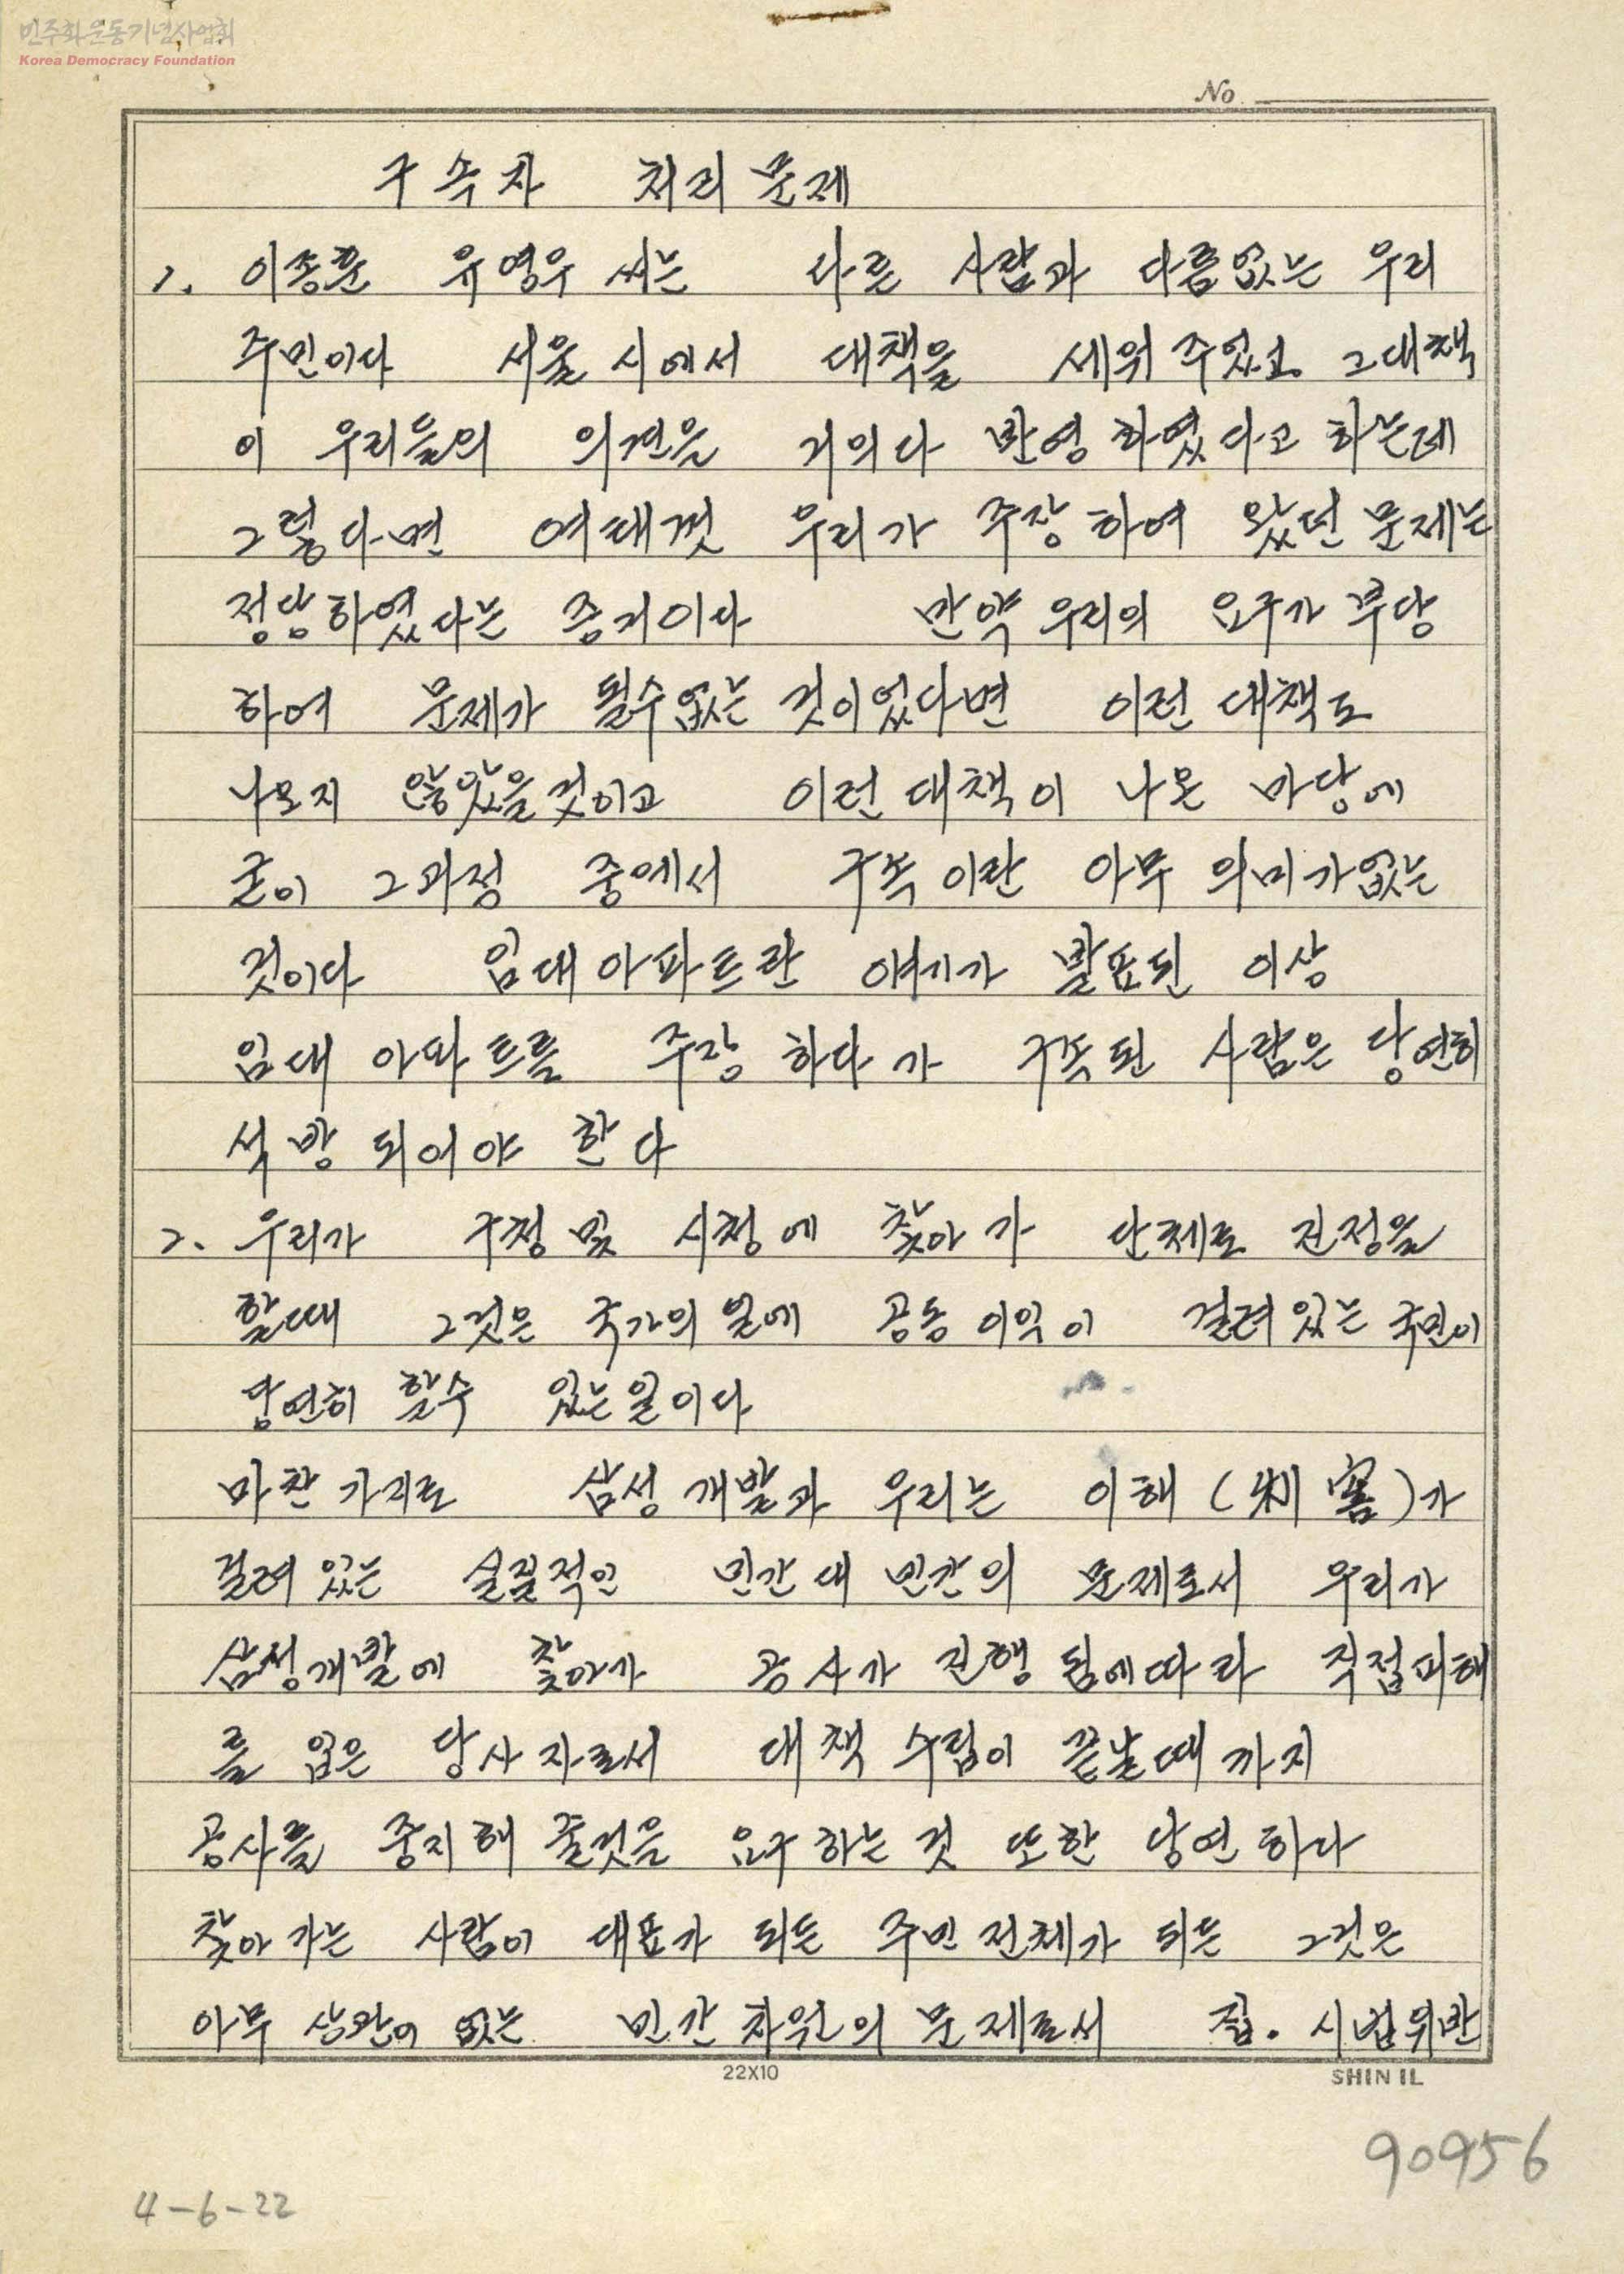 민주화운동기념사업회
Korea Democracy Foundation
No
구속자 처리문제
1. 이종훈 유영우 씨는 다른 사람과 다름없는 우리
주민이다 서울시에서 대책을 세워주었고 그대책
이 우리들의 의견을 거의다 반영하였다고 하는데
그렇다면 여태껏 우리가 주장하여 왔던 문제는
정당하였다는 증거이다 만약 우리의 요구가 부당
하여 문제가 될수없는 것이었다면 이런 대책도
나오지 않았을것이고 이런대책이 나온 마당에
굳이 그과정 중에서 구속이란 아무 의미가없는
것이다 임대아파트란 얘기가 발표된 이상
임대 아파트를 주장하다가 구속된 사람은 당연히
석방되어야 한다
2. 우리가 구청 및 시청에 찾아가 단체로 진정을
할때 그것은 국가의 일에 공동이익이 걸려있는 국민이
당연히 할수 있는일이다
마찬가지로 삼성개발과 우리는 이해(利害)가
걸려있는 실질적인 민간대 민간의 문제로서 우리가
삼성개발에 찾아가 공사가 진행됨에따라 직접피해
를 입은 당사자로서 대책수립이 끝날때까지
공사를 중지해 줄것을 요구하는 것 또한 당연하다
찾아가는 사람이 대표가 되든 주민전체가 되든 그것은
아무 상관이 없는 민간차원의 문제로서 집.시법위반
22X10
SHIN IL
90956
4-6-22